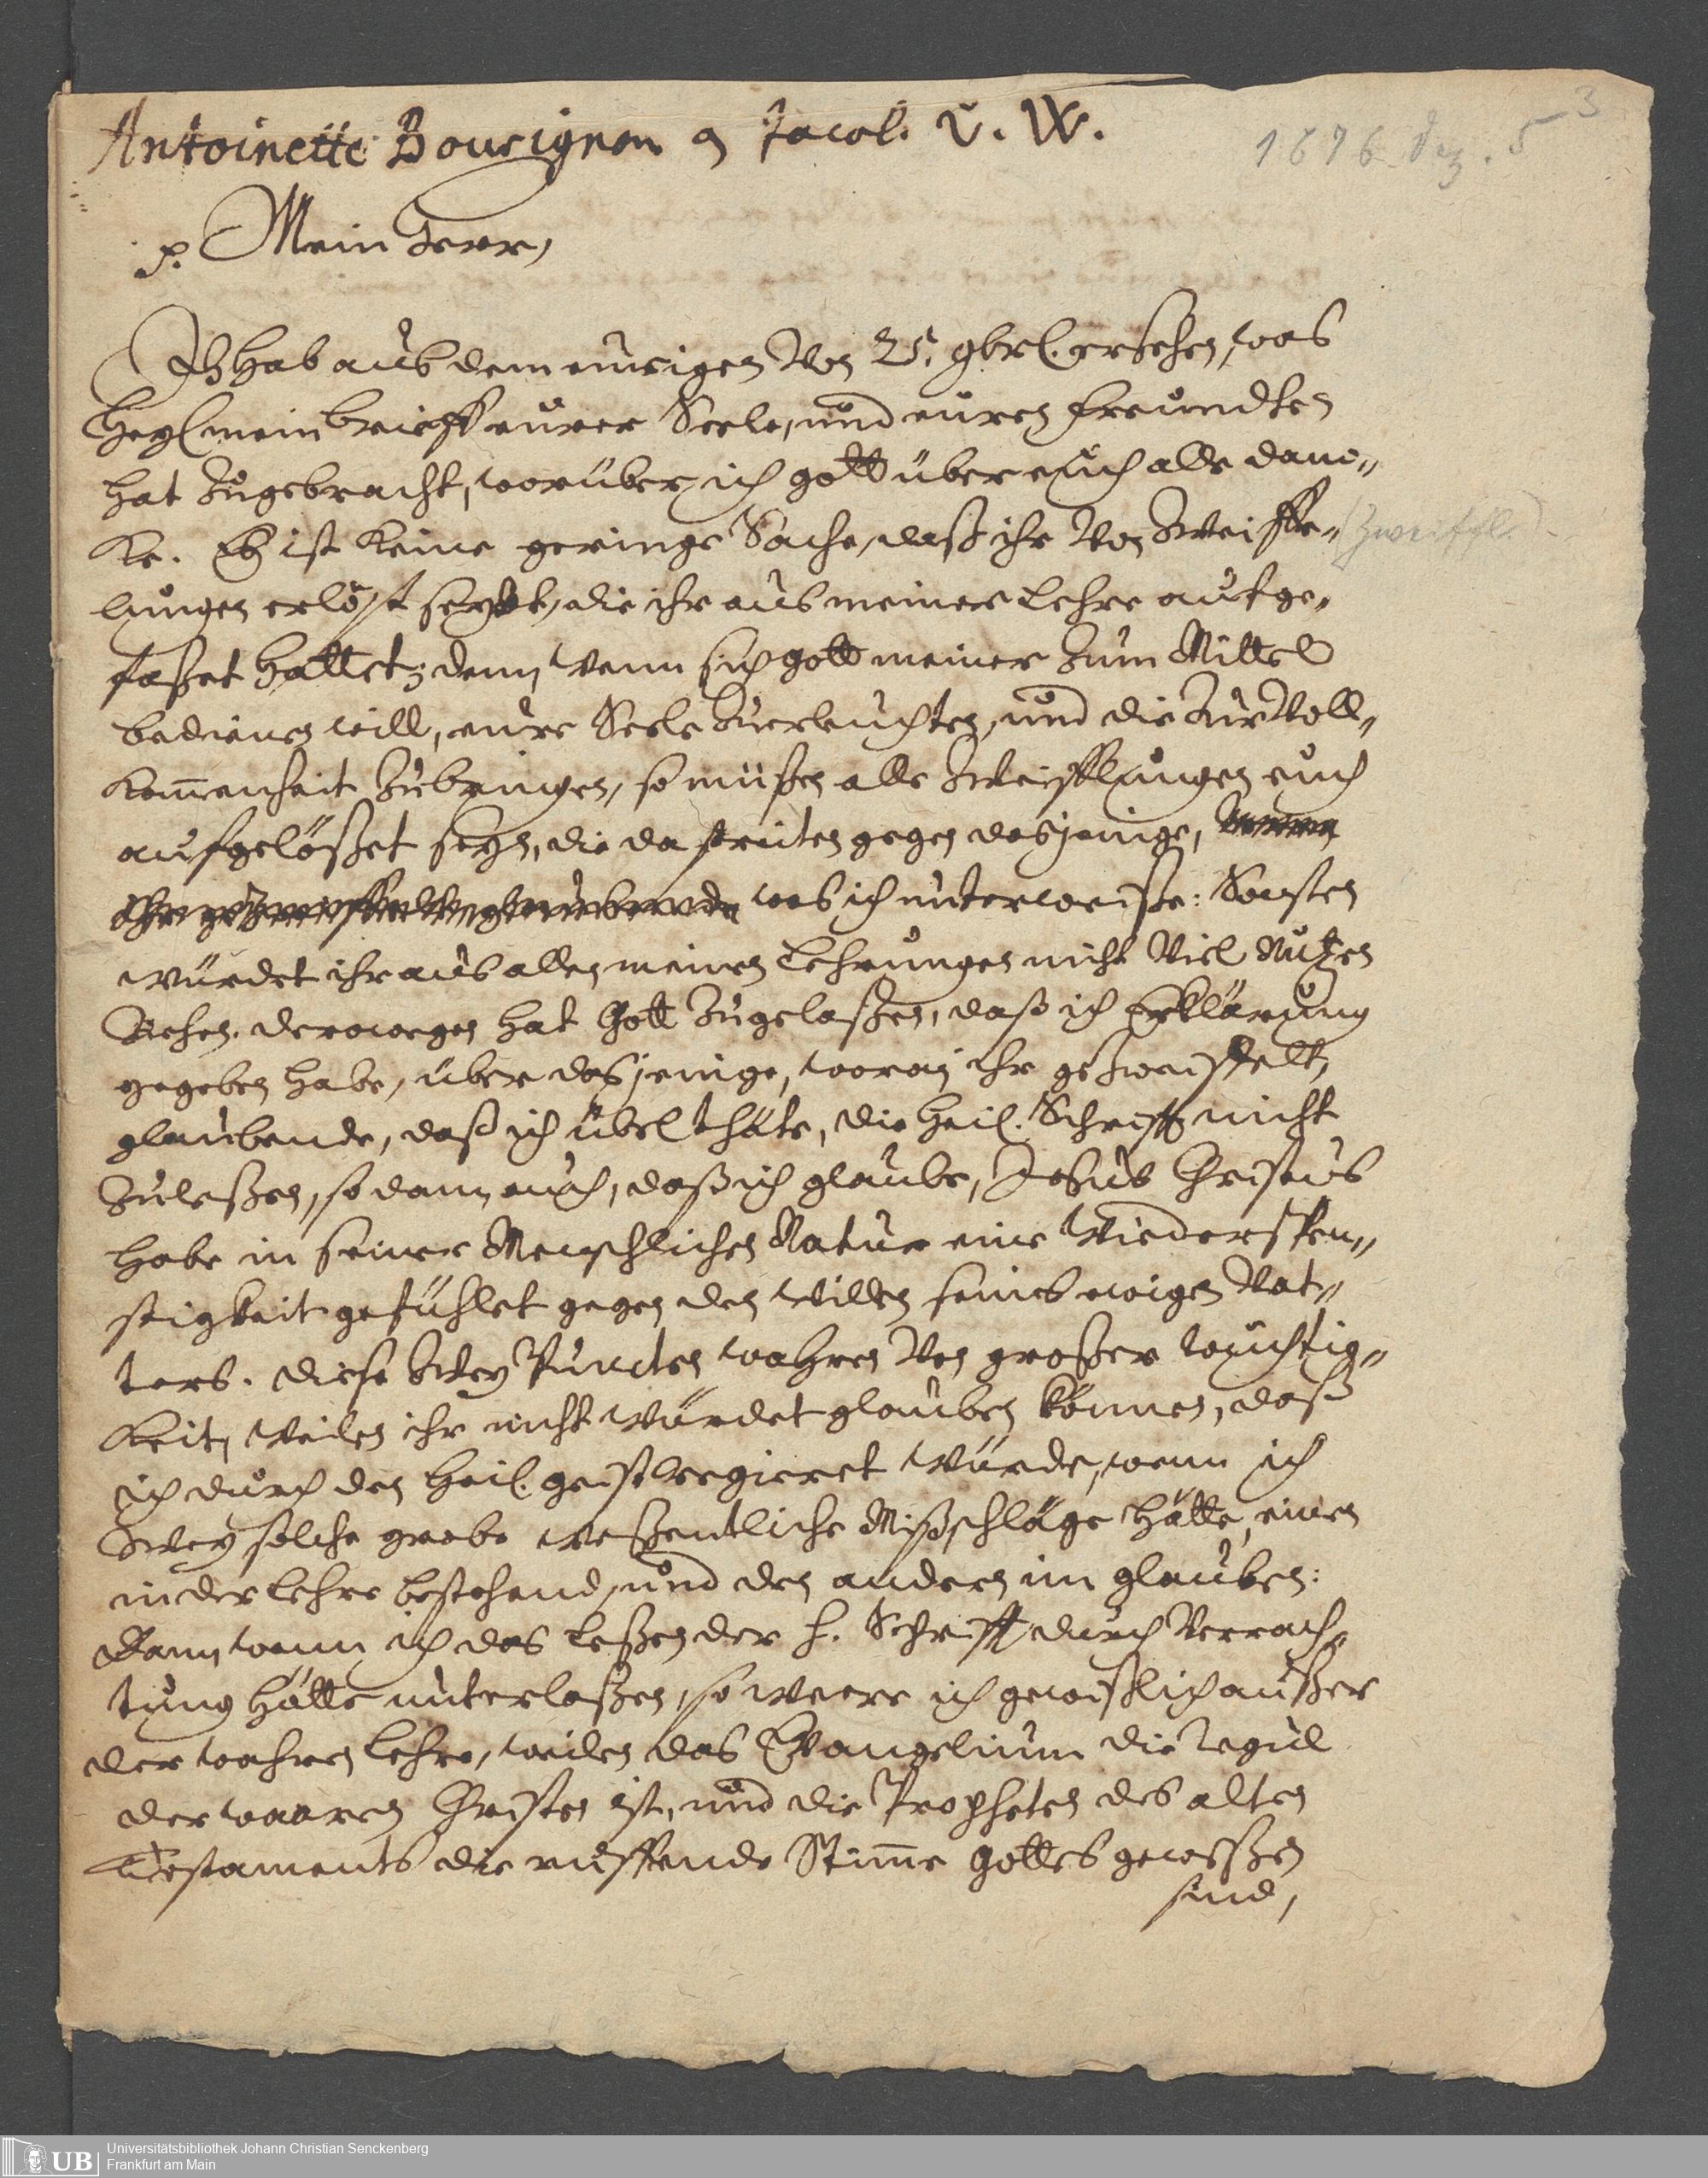 Antoinette Bourignon a Jacob. V. W.
3
1676 Dez. 5
P. Mein Herr,
Ich hab aus dem eurigen von 25. 9brl. ersehen, was
Heyl mein brieff eurer Seele, und euren freundten
hat zugebracht, worüber ich gott über euch alle danc„
ke. Es ist keine geringe Sache, daß ihr von Zweiffe„
(Zweiffl.)
lungen erlöst seydt, die ihr aus meiner Lehre aufge„
faßet hattet; denn wenn sich gott meiner zum Mittel
bedienen will, eure Seele zuerleuchten, und die zur Voll„
kom̅enheit zubringen, so müßen alle Zweifflungen euch
aufgelößet seyn, die da streiten gegen dasjenige,
was ich unterweise: Sonsten
würdet ihr aus allen meinen Lehrungen nicht viel Nutzen
ziehen. derowegen hat Gott zugelaßen, daß ich Erklärung
gegeben habe, über dasjenige, woran ihr gezweiffelt,
glaubende, daß ich übel thäte, die heil. Schrifft nicht
zuleßen, so dann auch, daß ich glaube, Jesus Christus
habe in seiner Menschlichen Natur eine Wiederspen„
stigkeit gefühlet gegen den Willen seines ewigen Vat„
ters. diese zwey Puncten wahren von großer wichtig„
keit, weilen ihr nicht würdet glauben können, daß
ich durch den heil. geist regieret würde, wenn ich
zwey solche grobe weßentliche Mißschläge hätte, einen
in der Lehre bestehend, und den andern im glauben:
Dann wann ich das Leßen der h. Schrifft durch Verach„
tung hätte unterlaßen, soweere ich gewißlich außer
der wahren Lehre, weilen das Evangelium die Regul
der waaren Christen ist, und die Propheten des alten
Testaments die ruffende Stim̅e Gottes geweßen
sind,
UB
Universitätsbibliothek Johann Christian Senckenberg
Frankfurt am Main